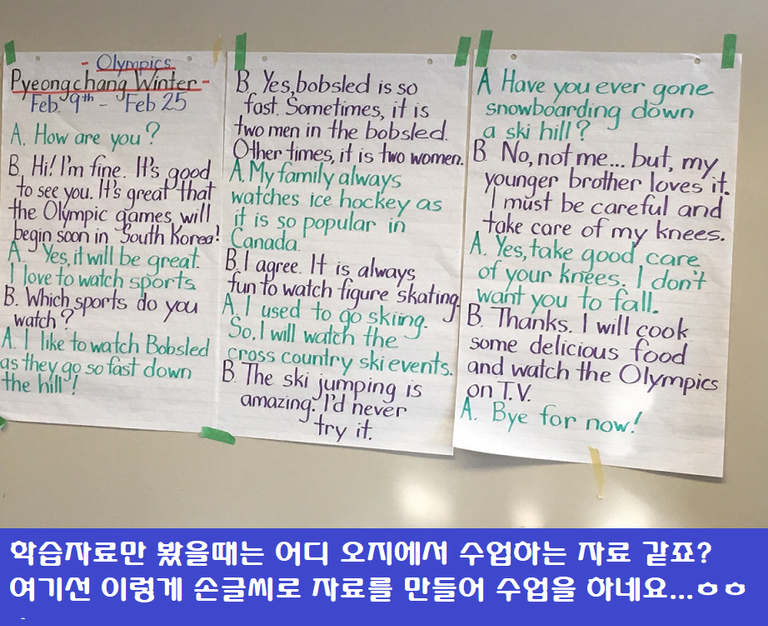 - Olympics
Pyeongchang Winter -
Feb. 9th - Feb 25
A. How are you?
B. Hi! I'm fine. It's good
to see you. It's great that
the Olympic games will
begin soon in South Korea!
A. Yes, it will be great.
I love to watch sports.
B. Which sports do you
watch?
A. I like to watch Bobsled
as they go so fast down
the hill!
B. Yes, bobsled is so
fast. Sometimes, it is
two men in the bobsled.
Other times, it is two women.
A. My family always
watches ice hockey as
it is so popular in
Canada.
B. I agree. It is always
fun to watch figure skating.
A. I used to go skiing.
So, I will watch the
cross country ski events.
B. The ski jumping is
amazing. I'd never
try it.
A Have you ever gone
snowboarding down
a ski hill?
B. No, not me... but, my
younger brother loves it.
I must be careful and
take care of my knees.
A. Yes, take good care
of your knees. I don't
want you to fall.
B. Thanks. I will cook
some delicious food
and watch the Olympics
on T.V.
A. Bye for now!
학습자료만 봤을때는 어디 오지에서 수업하는 자료 같죠?
여기선 이렇게 손글씨로 자료를 만들어 수업을 하네요...ㅎㅎ